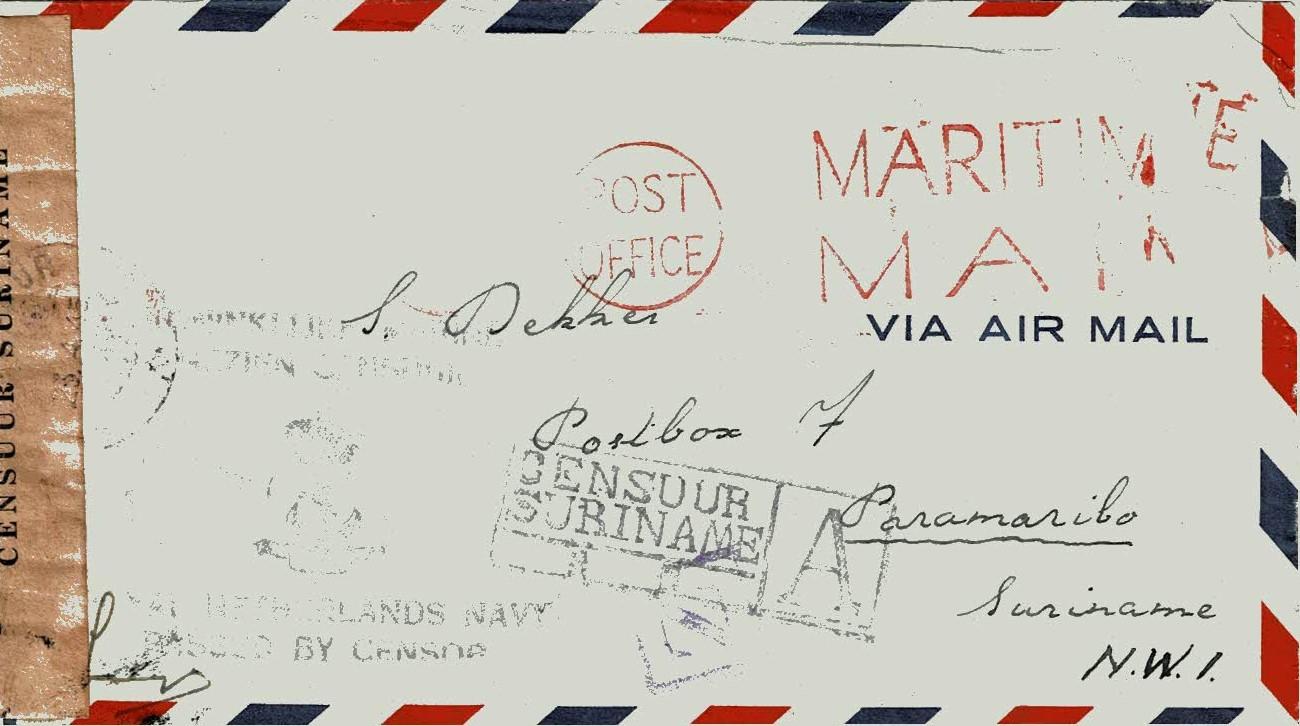 POST
OFFICE
MARITIME
MAIL
VIA AIR MAIL
S. Dekker
Postbox 7
Paramaribo
Suriname
N.W.I.
CENSUUR
SURINAME
A
NETHERLANDS NAVY
PASSED BY CENSOR
CENSUUR SURINAME